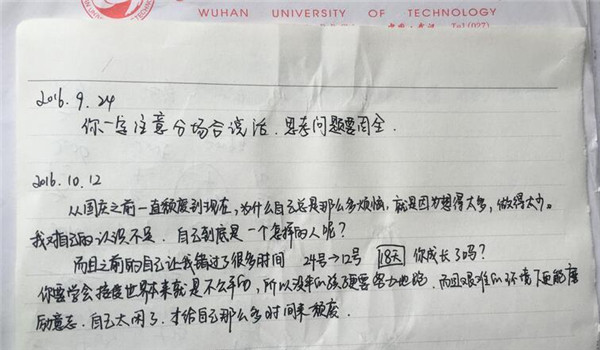 WUHAN UNIVERSITY OF TECHNOLOGY
Tel:(027)
2016.9.24
你一定注意分场合说话.思考问题要周全.
2016.10.12
从国庆之前一直颓废到现在,为什么自己总是那么多烦恼,就是因为想得太多,做得太少。
我对自己的认识不足.自己到底是一个怎样的人呢?
而且之前的自己让我错过了很多时间 24号→12号 18天 你成长了吗?
你要学会接受世界本来就是不公平的,所以没伞的孩子要努力地跑.而且艰难的环境下更能磨
励意志.自己太闲了.才给自己那么多时间来颓废.